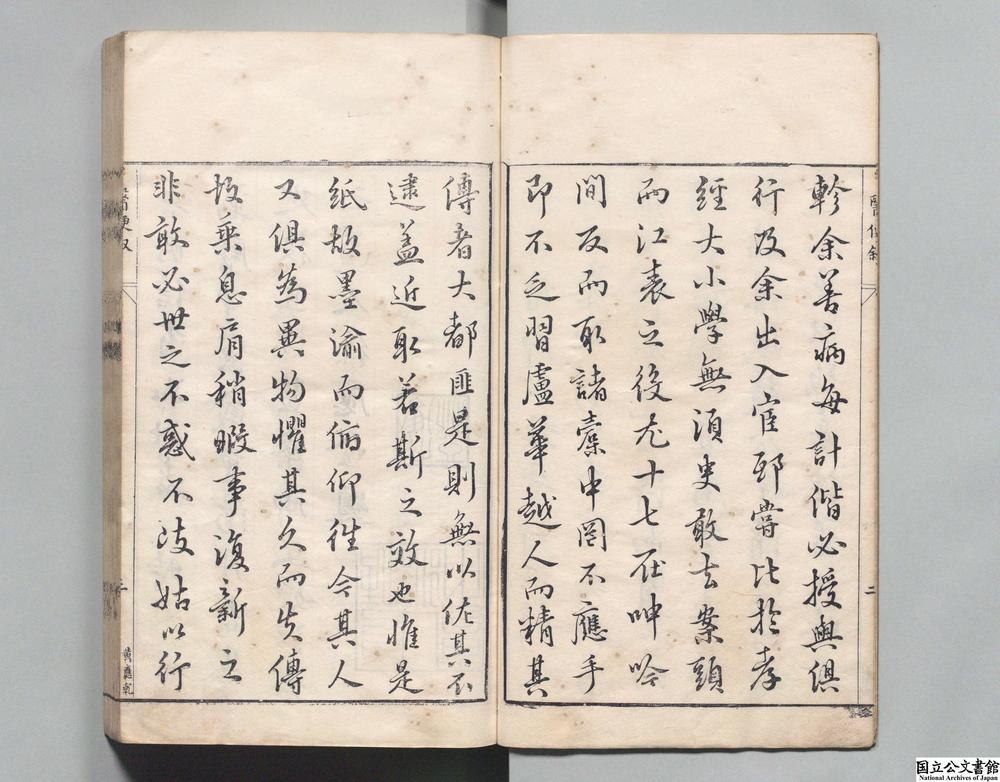 軫余善病每計偕必授與俱
行及余出入宦邸嘗比於孝
經大小學無須臾敢去案頭
而江表之役尤十七在呻吟
間反而取諸橐中罔不應手
即不乏習盧華越人而精其
傳者大都匪是則無以佐其不
逮盖近取若斯之效也惟是
紙故墨渝而俯仰徃今其人
又俱為異物懼其久而失傳
故乗息肩稍暇事復新之
非敢必世之不惑不歧姑以行
二
国立公文書館
National Archives of Japan